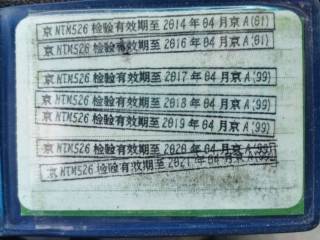 京NTM526检验有效期至2014年04月京A(01)
京NTM526检验有效期至2016年04月京A(01)
京NTM526检验有效期至2017年04月京A(99)
京NTM526检验有效期至2018年04月京A(99)
京NTM526检验有效期至2019年04月京A(99)
京NTM526检验有效期至2020年04月京A(99)
京NTM526检验有效期至2021年04月京A(99)